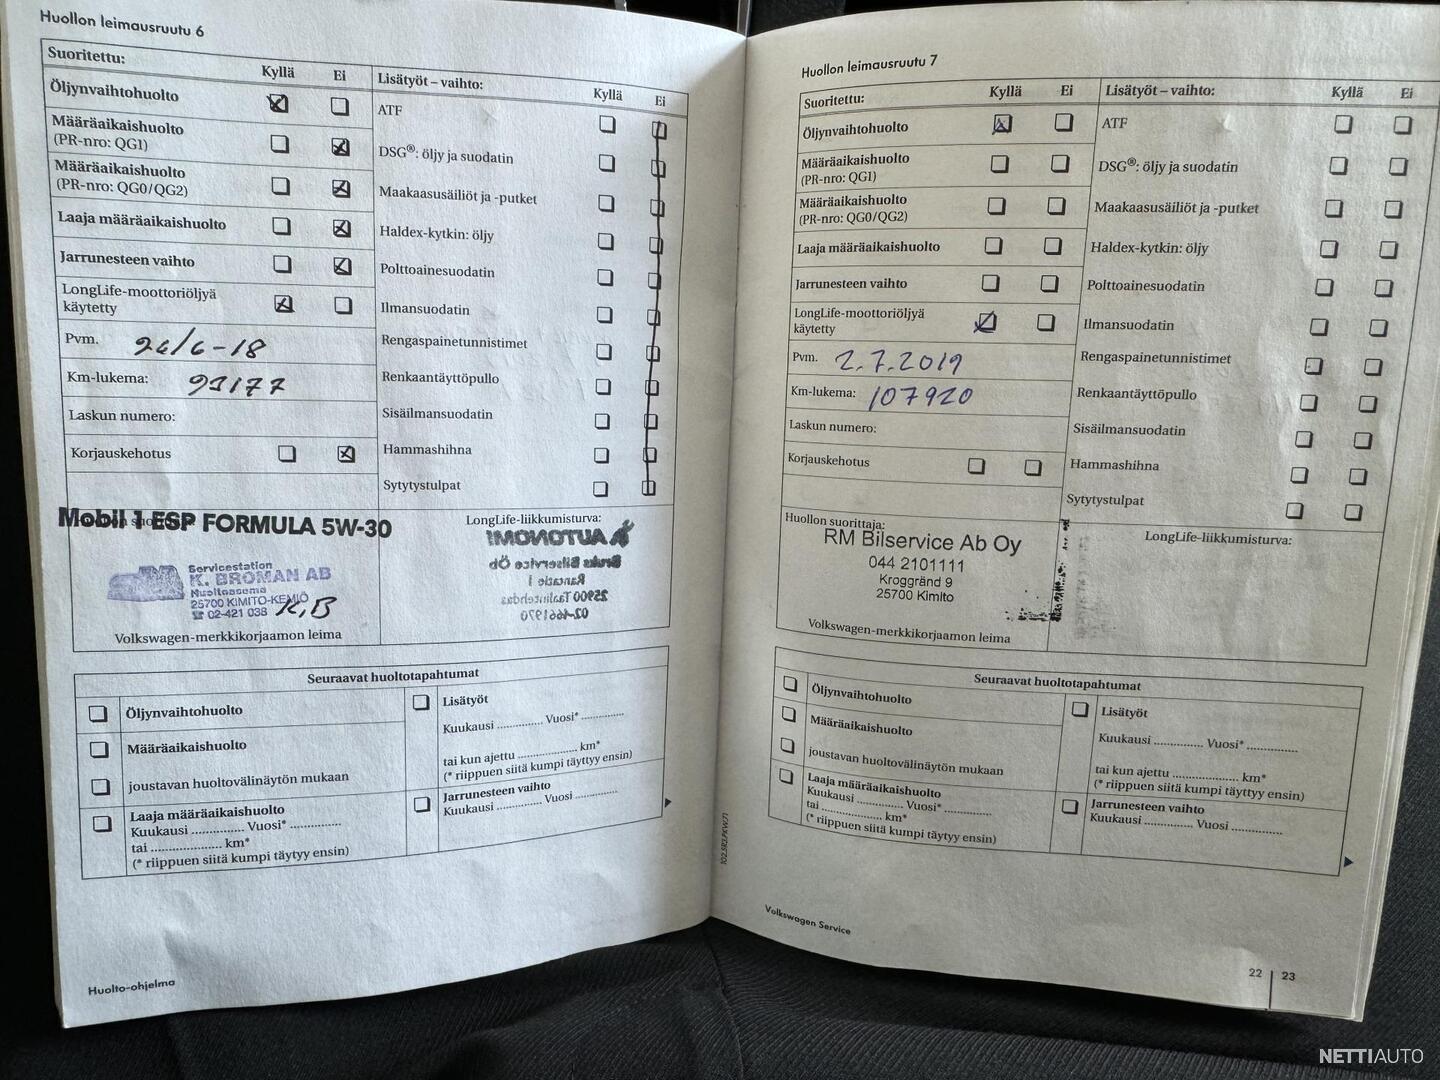 Huollon leimausruutu 6
Suoritettu: Kyllä Ei
Öljynvaihtohuolto
Määräaikaishuolto
(PR-nro: QG1)
Määräaikaishuolto
(PR-nro: QG0/QG2)
Laaja määräaikaishuolto
Jarrunesteen vaihto
LongLife-moottoriöljyä
käytetty
Pvm. 26/6-18
Km-lukema: 91177
Laskun numero:
Korjauskehotus
Lisätyöt – vaihto: Kyllä Ei
ATF
DSG®: öljy ja suodatin
Maakaasusäiliöt ja -putket
Haldex-kytkin: öljy
Polttoainesuodatin
Ilmansuodatin
Rengaspainetunnistimet
Renkaantäyttöpullo
Sisäilmansuodatin
Hammashihna
Sytytystulpat
Mobil 1 ESP FORMULA 5W-30
Servicestation
K. BROMAN AB
Huoltoasema
25700 KIMITO-KEMIÖ
☎ 02-421 038 K,B
Volkswagen-merkkikorjaamon leima
LongLife-liikkumisturva:
AUTONOMI
Bruks Bilservice Öb
25900 Taalintehdas
02-4661970
Seuraavat huoltotapahtumat
Öljynvaihtohuolto
Määräaikaishuolto
joustavan huoltovälinäytön mukaan
Laaja määräaikaishuolto
Kuukausi ............... Vuosi* ...............
tai ..................... km*
(* riippuen siitä kumpi täytyy ensin)
Lisätyöt
Kuukausi .............. Vuosi* .............
tai kun ajettu .................. km*
(* riippuen siitä kumpi täytyy ensin)
Jarrunesteen vaihto
Kuukausi ............... Vuosi .............
Huolto-ohjelma
Huollon leimausruutu 7
Suoritettu: Kyllä Ei
Öljynvaihtohuolto
Määräaikaishuolto
(PR-nro: QG1)
Määräaikaishuolto
(PR-nro: QG0/QG2)
Laaja määräaikaishuolto
Jarrunesteen vaihto
LongLife-moottoriöljyä
käytetty
Pvm. 2.7.2019
Km-lukema: 107920
Laskun numero:
Korjauskehotus
Lisätyöt – vaihto: Kyllä Ei
ATF
DSG®: öljy ja suodatin
Maakaasusäiliöt ja -putket
Haldex-kytkin: öljy
Polttoainesuodatin
Ilmansuodatin
Rengaspainetunnistimet
Renkaantäyttöpullo
Sisäilmansuodatin
Hammashihna
Sytytystulpat
Huollon suorittaja:
RM Bilservice Ab Oy
044 2101111
Kroggränd 9
25700 Kimito
Volkswagen-merkkikorjaamon leima
LongLife-liikkumisturva:
Seuraavat huoltotapahtumat
Öljynvaihtohuolto
Määräaikaishuolto
joustavan huoltovälinäytön mukaan
Laaja määräaikaishuolto
Kuukausi ............... Vuosi* ..............
tai ..................... km*
(* riippuen siitä kumpi täytyy ensin)
Lisätyöt
Kuukausi ............... Vuosi* ...............
tai kun ajettu .................... km*
(* riippuen siitä kumpi täytyy ensin)
Jarrunesteen vaihto
Kuukausi ............... Vuosi ...............
Volkswagen Service
22 23
NETTIAUTO